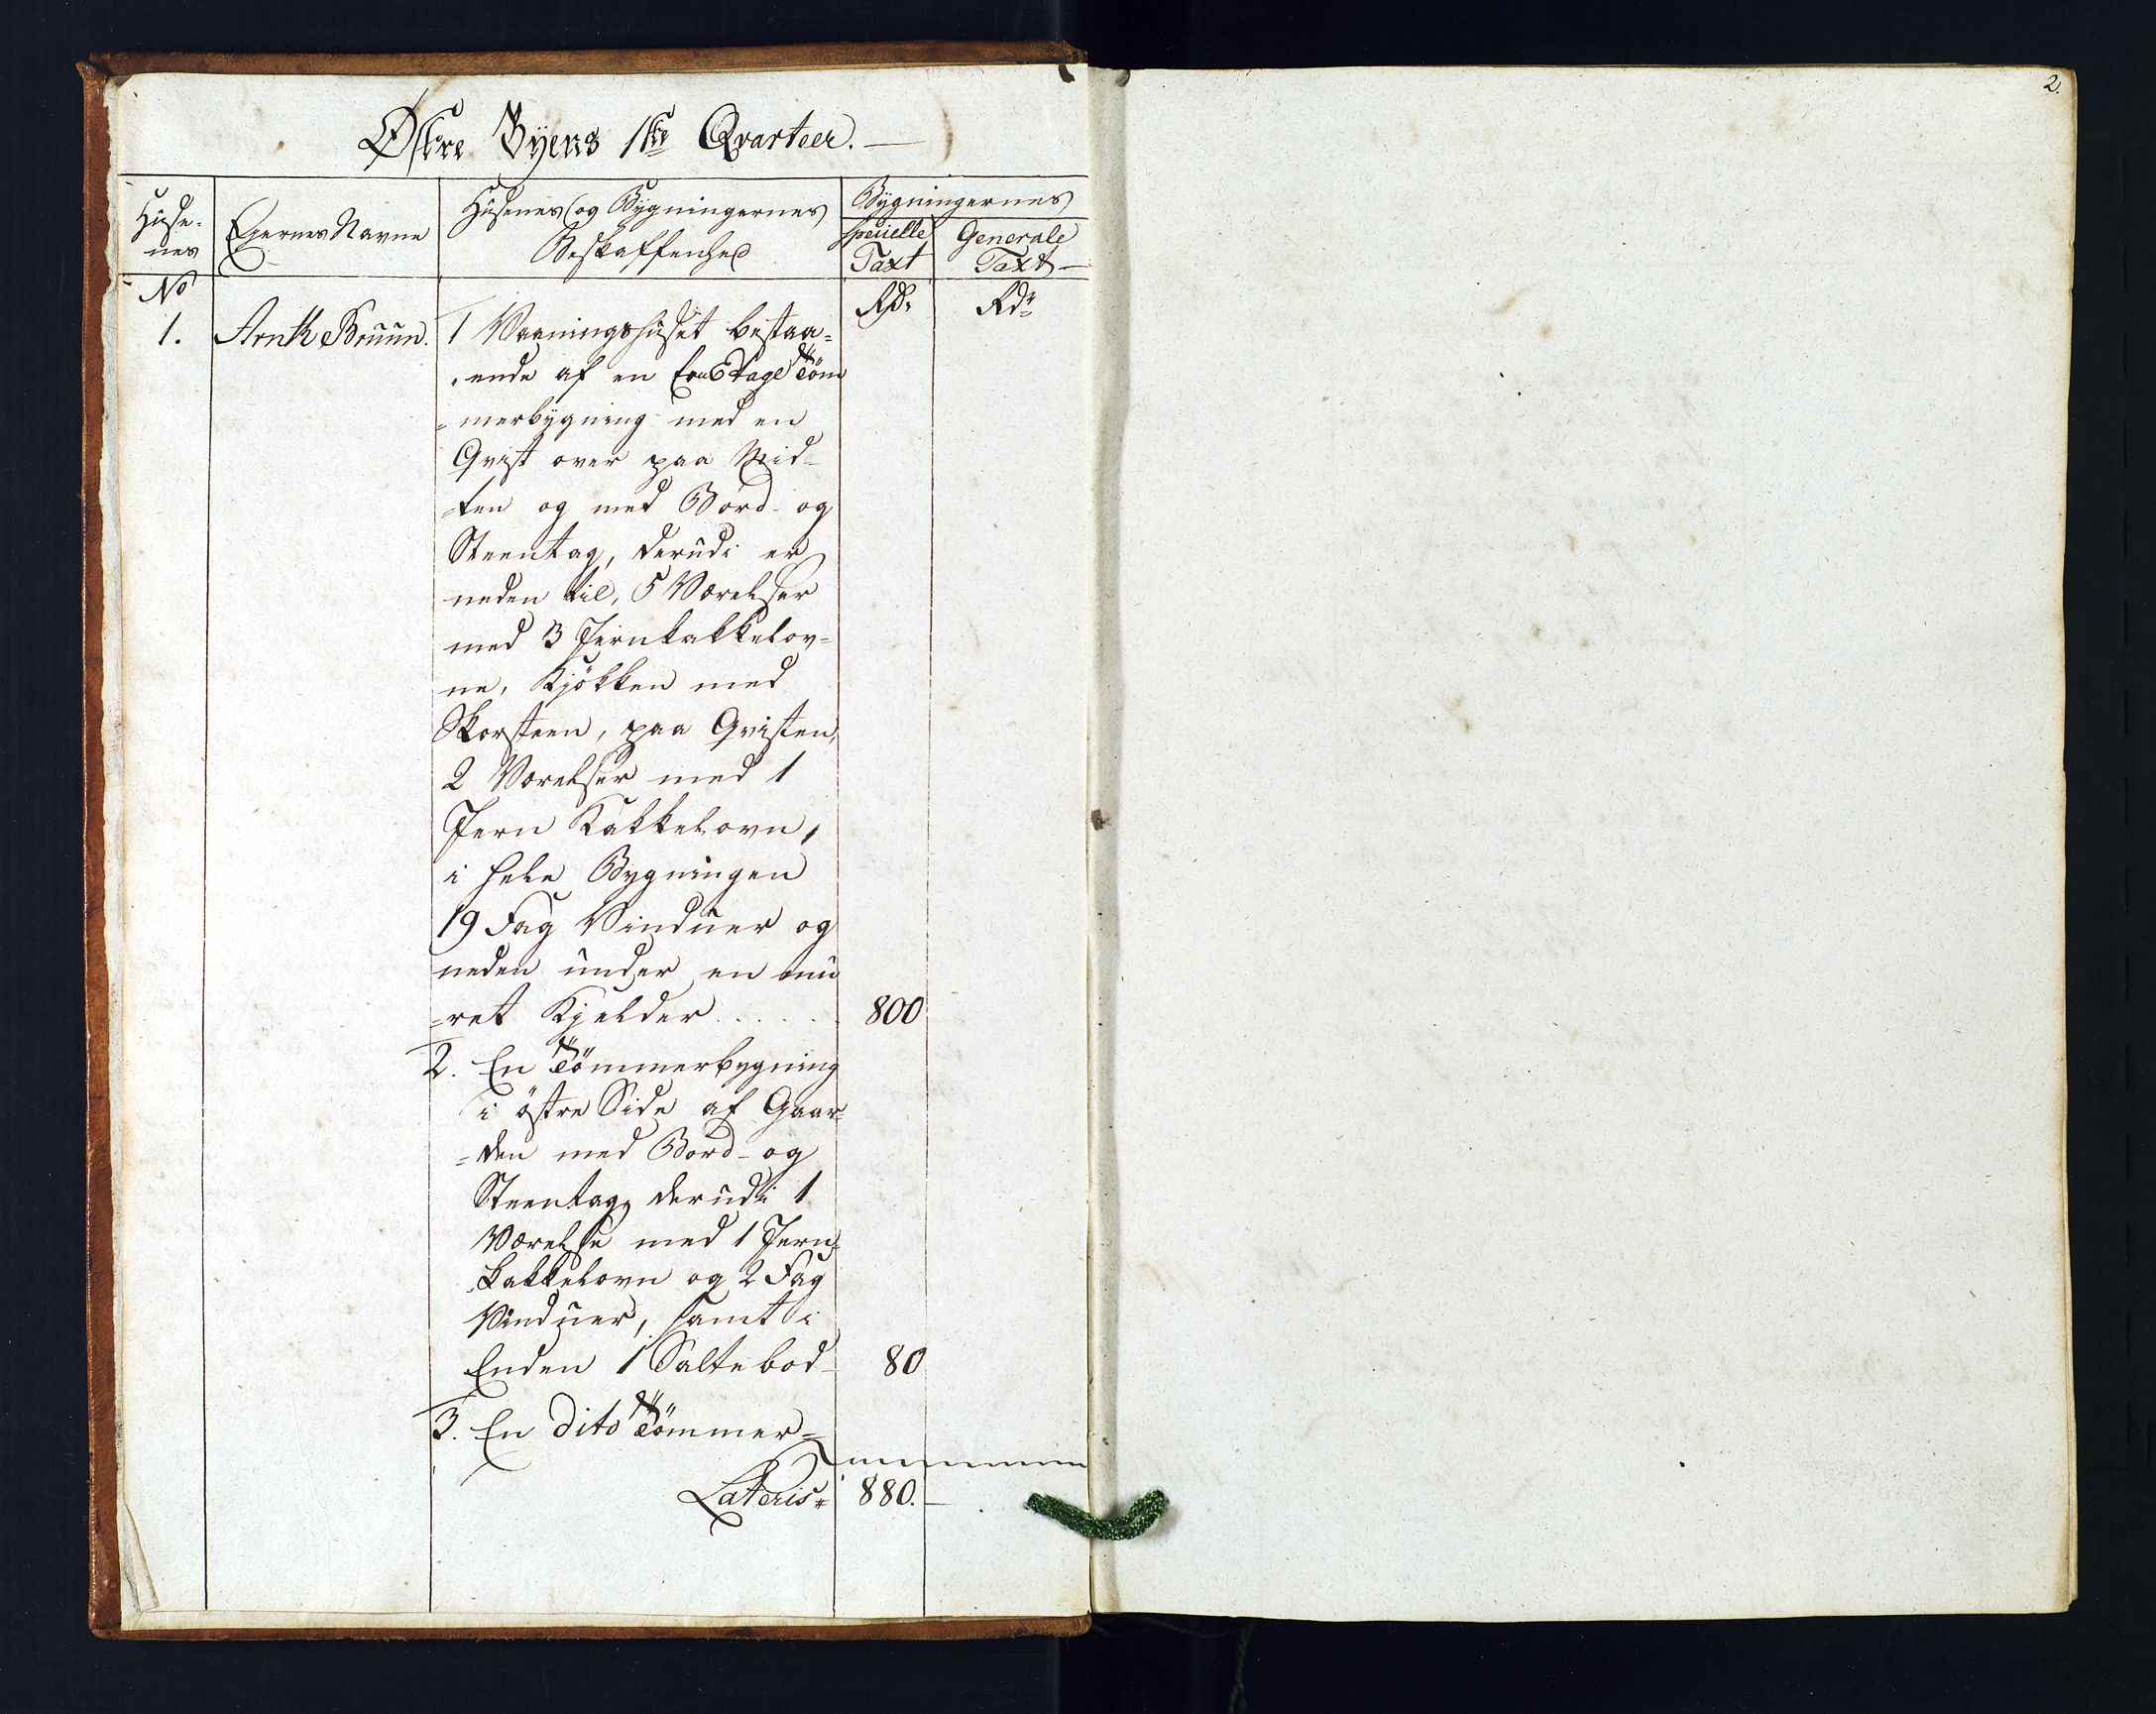 2.
Østre Byens 1ste Qvarteer.
Huse-
nes
Eyernes Navne
Husenes og Bygningernes
Beskaffenhed
Bygningernes
specielle
Taxt
Generale
Taxt
No
Rd.
Rdr
1. Arnth Bruun. 1 Vaaningshuset bestaa-
ende af en Etage Töm
merbÿgning med en
Qvist over paa Mid-
ten og med Bord- og
Steentag, derudi er
neden til, 5 Værelser
med 3 Jernkakkelov-
ne, Kjökken med
Skorsteen, paa Qvisten,
2 Værelser med 1
Jern Kakkelovn,
i hele Bygningen
19 Fag Vinduer og
neden under en mu
ret Kjelder . . . . . 800
2. En Tömmerbygning
i östre Side af Gaar-
den med Bord- og
Steentag, derudi 1
Værelse med 1 Jern-
kakkelovn og 2 Fag
Vinduer, samt i
Enden 1 Saltebod 80
3. En dito Tömmer-
Lateris 880.